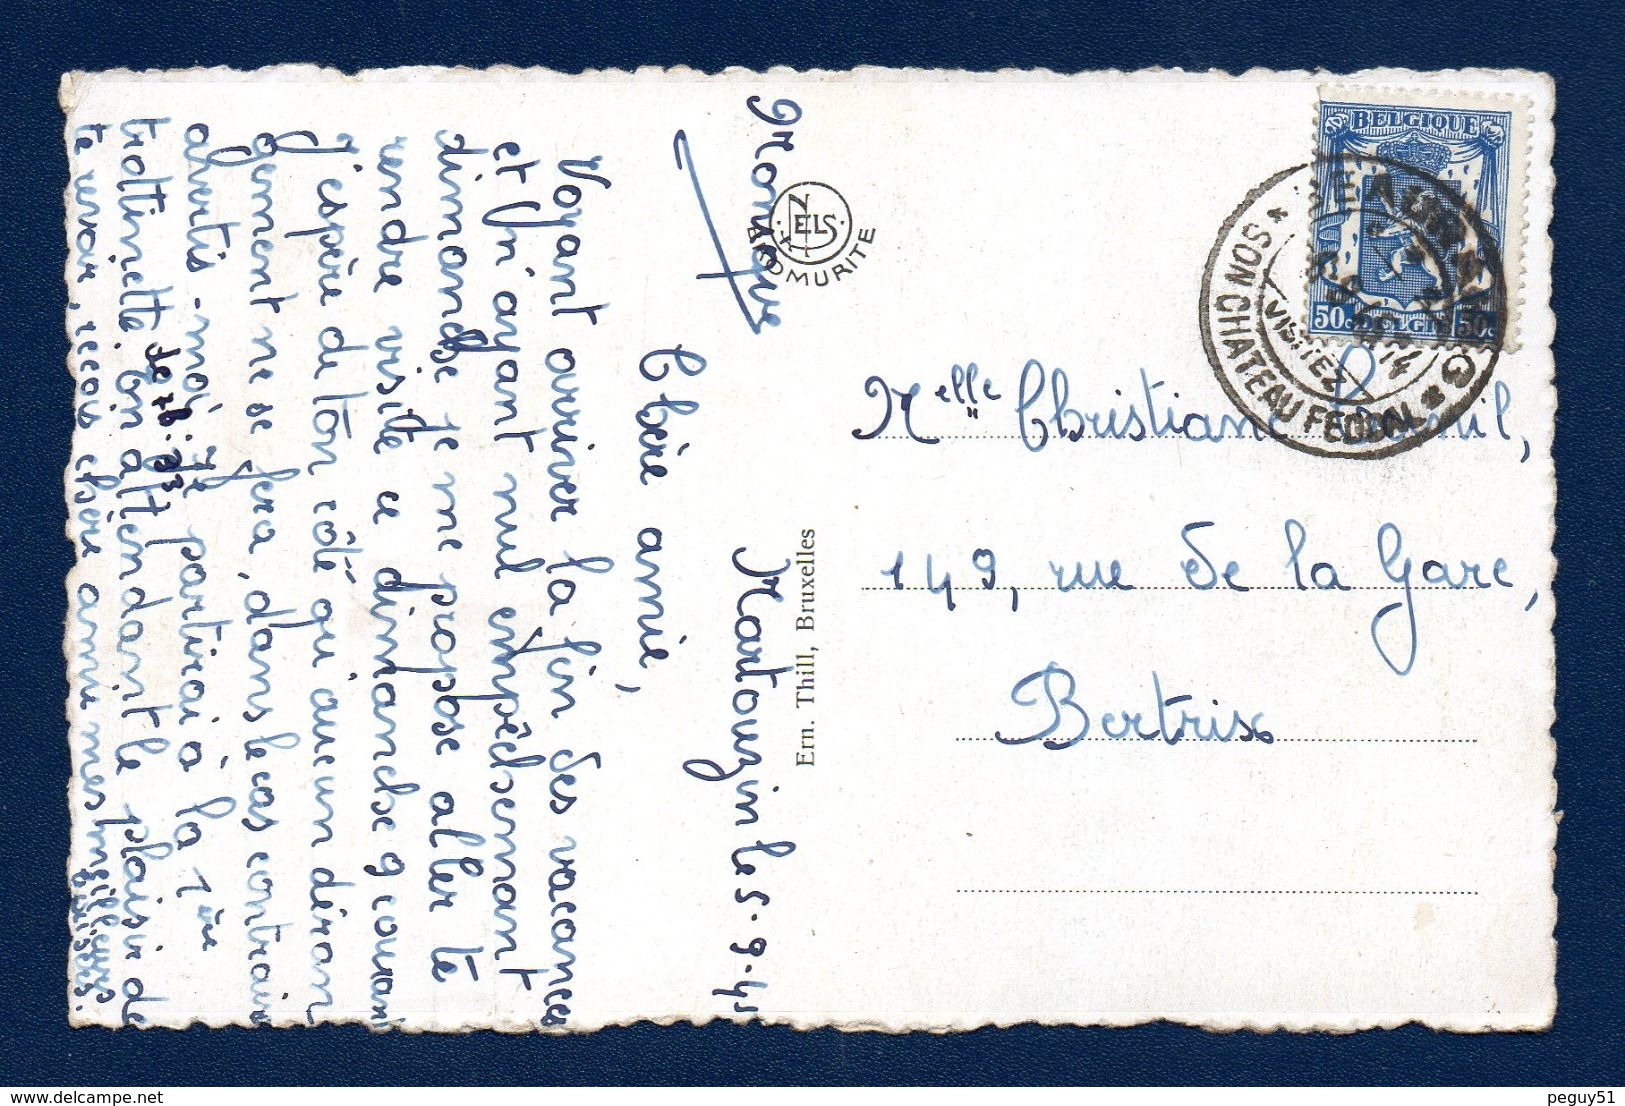 Martouzin le 5.9.45
Chère amie,
Voyant arriver la fin des vacances
et n'ayant nul empêchement
dimanche je me propose aller te
rendre visite ce dimanche 9 courant
j'espère de ton côté qu'aucun déran
gement ne se fera, dans le cas contraire
avertis-moi, je partirai à la 1ère
trottinette. En attendant le plaisir de
te revoir, reçois chère amie mes meilleurs
baisers.
NELS
BROMURITE
Ern. Thill, Bruxelles
BELGIQUE
50c BELGIE 50c
BEAURAING
VISITEZ
SON CHATEAU FEODAL
Melle Christiane
149, rue de la Gare,
Bertrix
peguy51